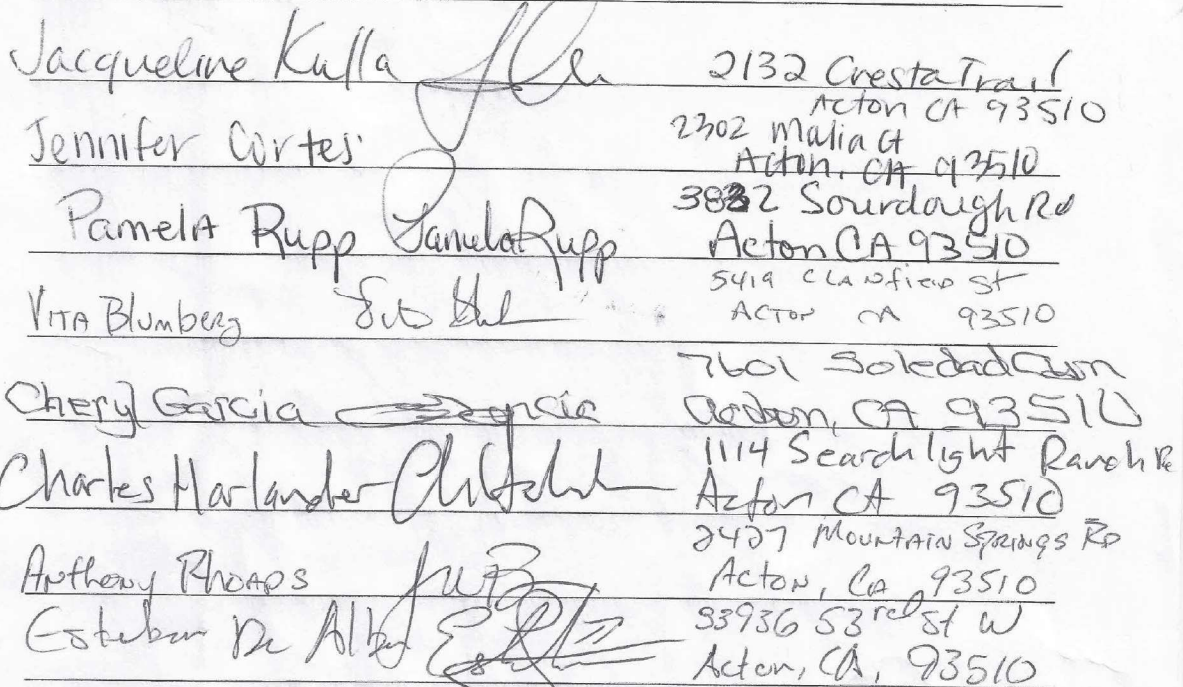 Jacqueline Kulla 2132 Cresta Trail
Acton CA 93510
Jennifer Cortes 2302 Malia Ct
Acton, CA 93510
Pamela Rupp Pamela Rupp 3832 Sourdough Rd
Acton CA 93510
Vita Blumberg 5419 Clanfield St
Acton CA 93510
Cheryl Garcia Garcia 7601 Soledad Cyn
Acton, CA 93510
Charles Harlander 1114 Searchlight Ranch Rd
Acton CA 93510
Anthony Rhoads 2427 Mountain Springs Rd
Acton, CA 93510
Esteban De Alba 33936 53rd St W
Acton, CA, 93510